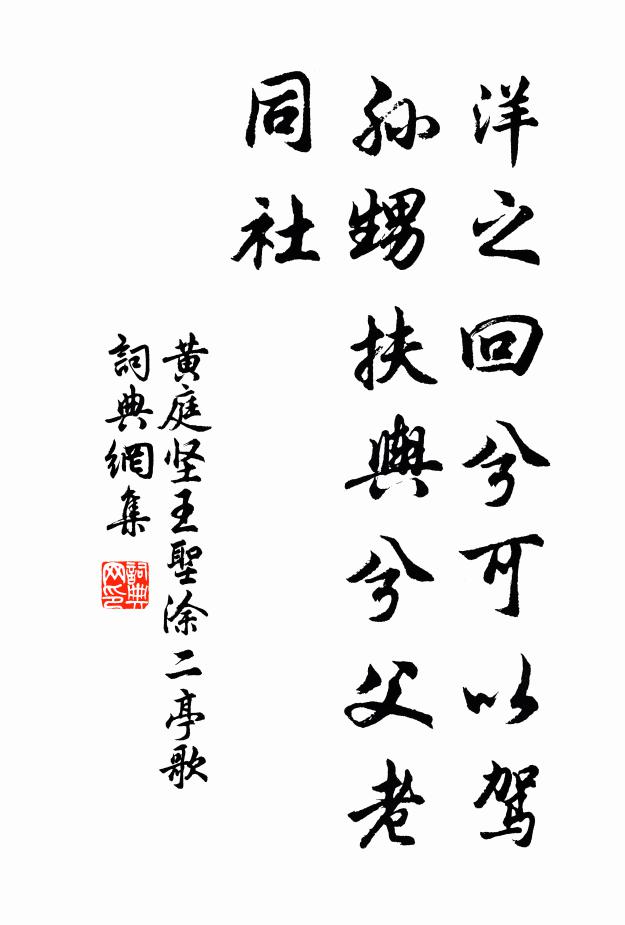 洋之回兮可以駕
孙甥扶輿兮父老
同社
黄庭坚王聖涂二亭歌
詞典網集
詞典网印